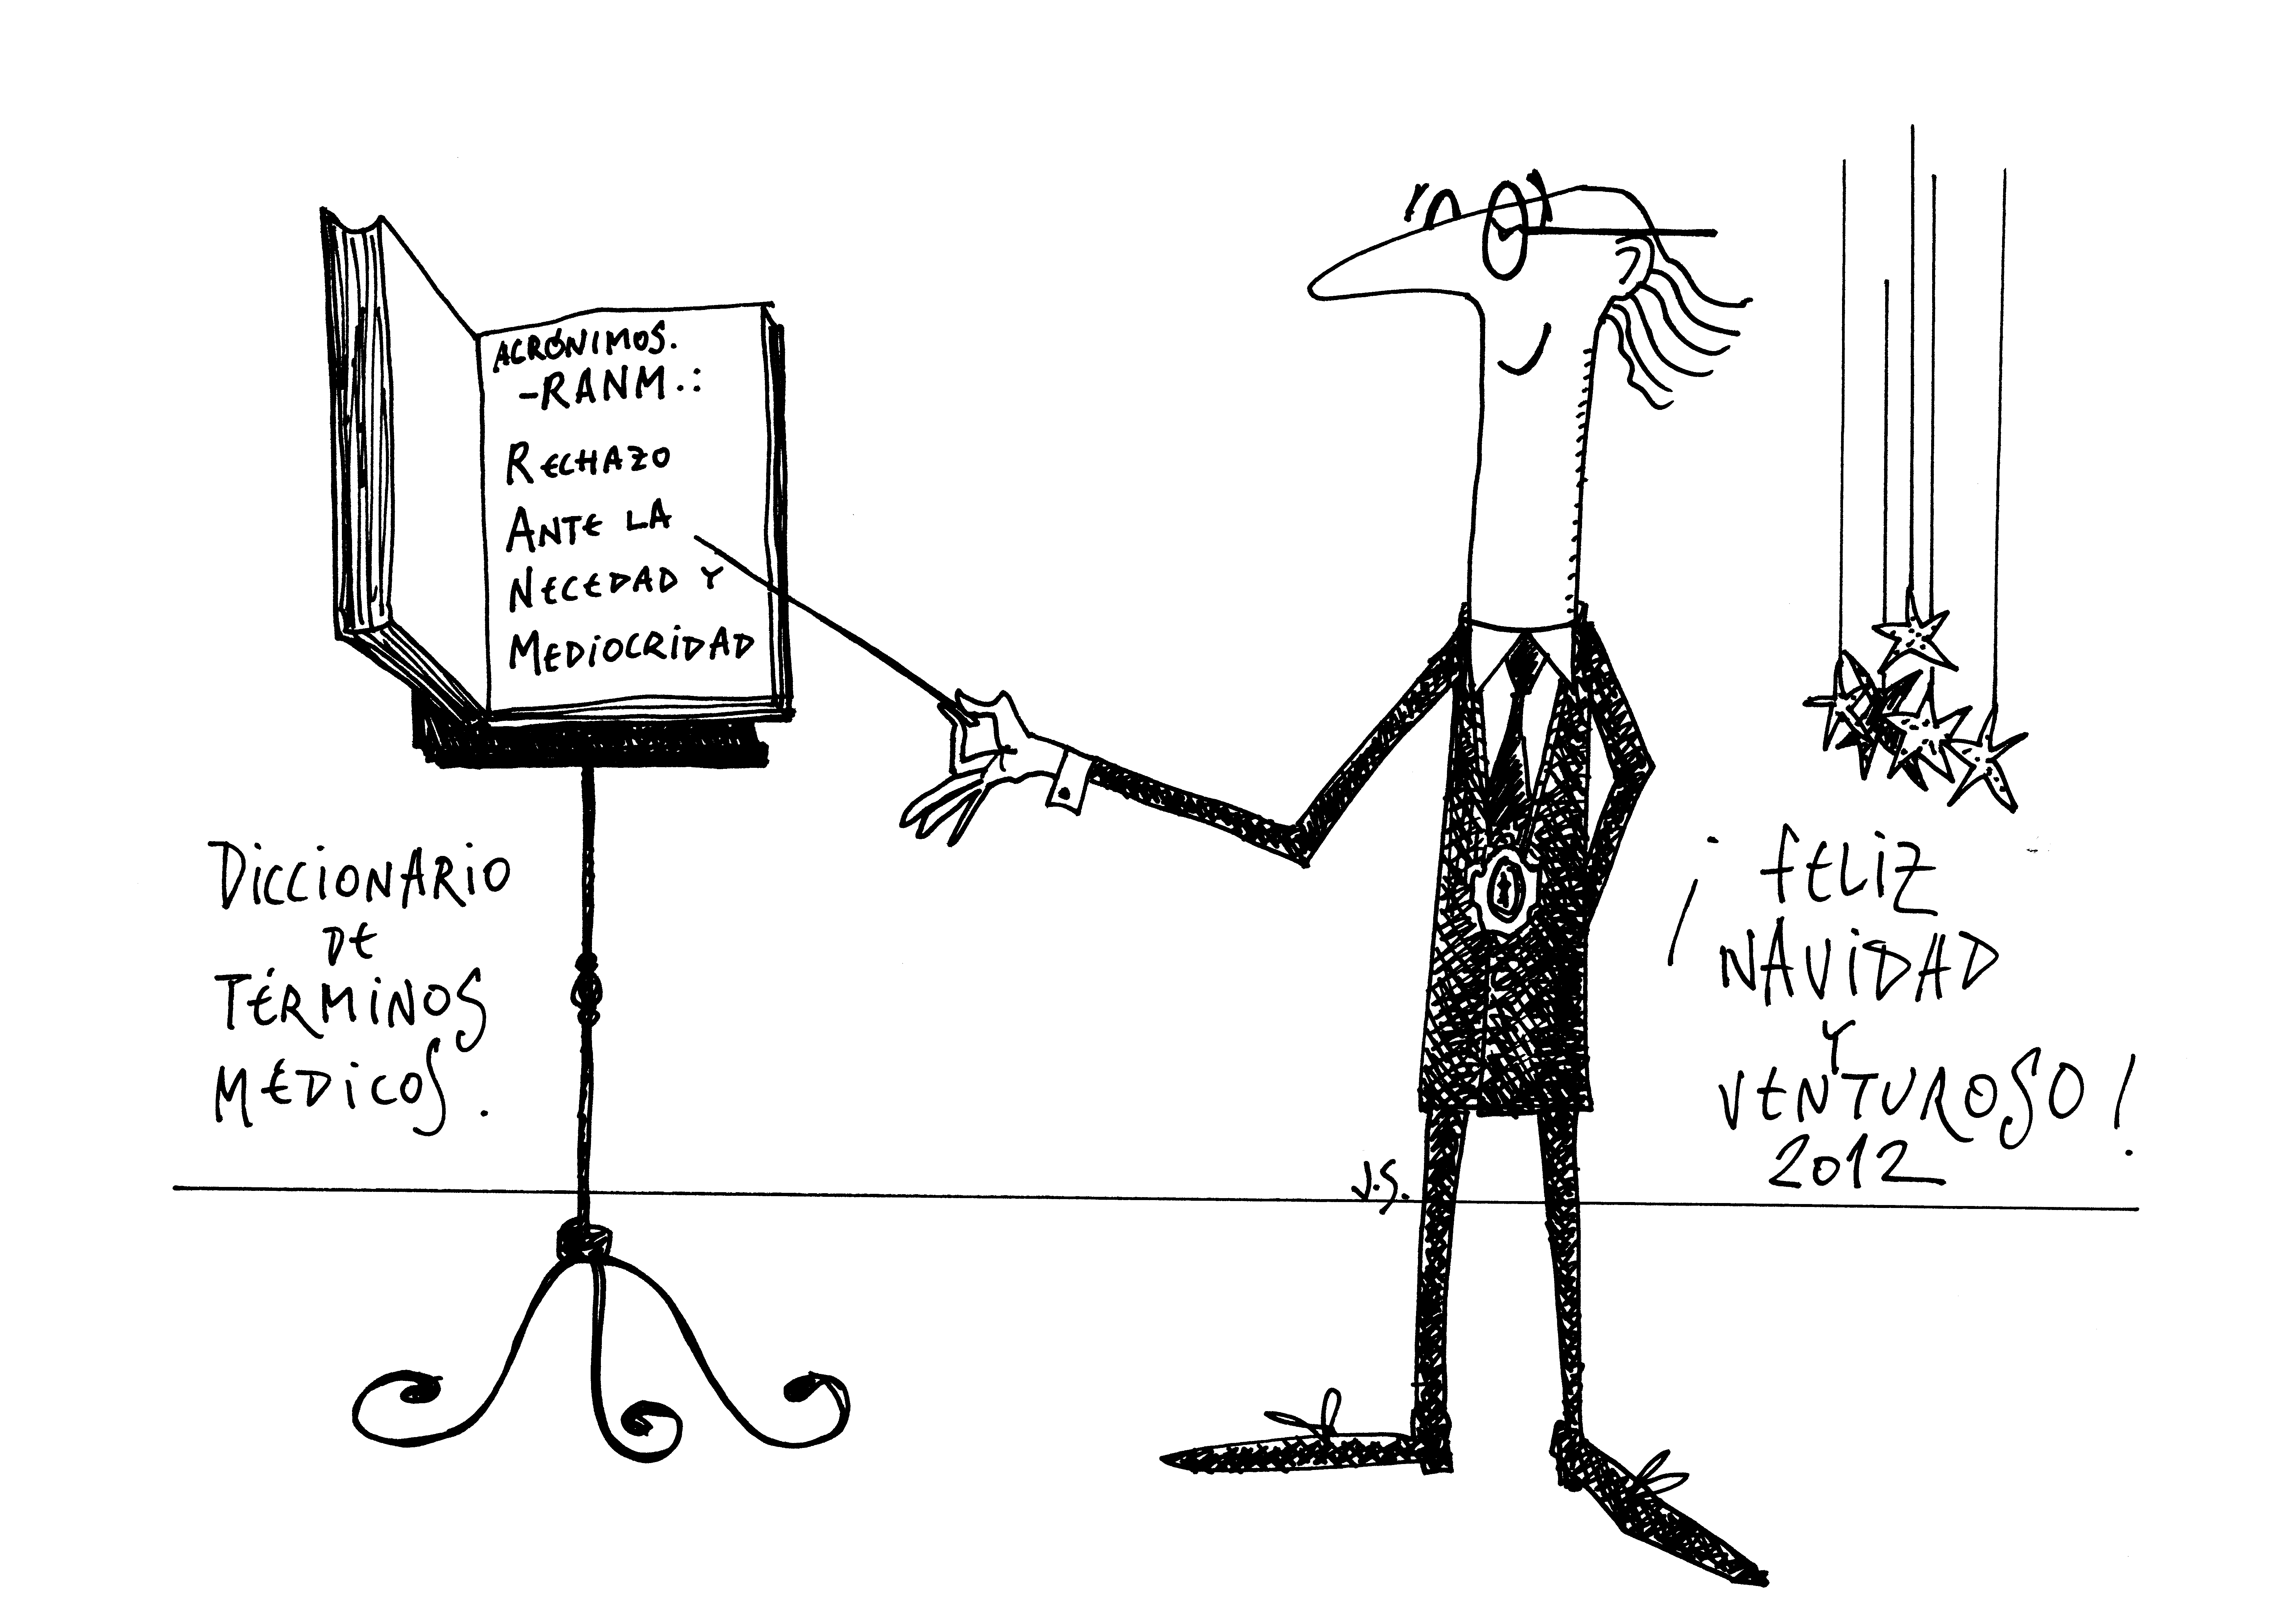 ACRÓNIMOS.
-RANM.:
RECHAZO
ANTE LA
NECEDAD Y
MEDIOCRIDAD
DICCIONARIO
DE
TÉRMINOS
MÉDICOS.
¡FELIZ
NAVIDAD
Y
VENTUROSO!
2012
J.S.